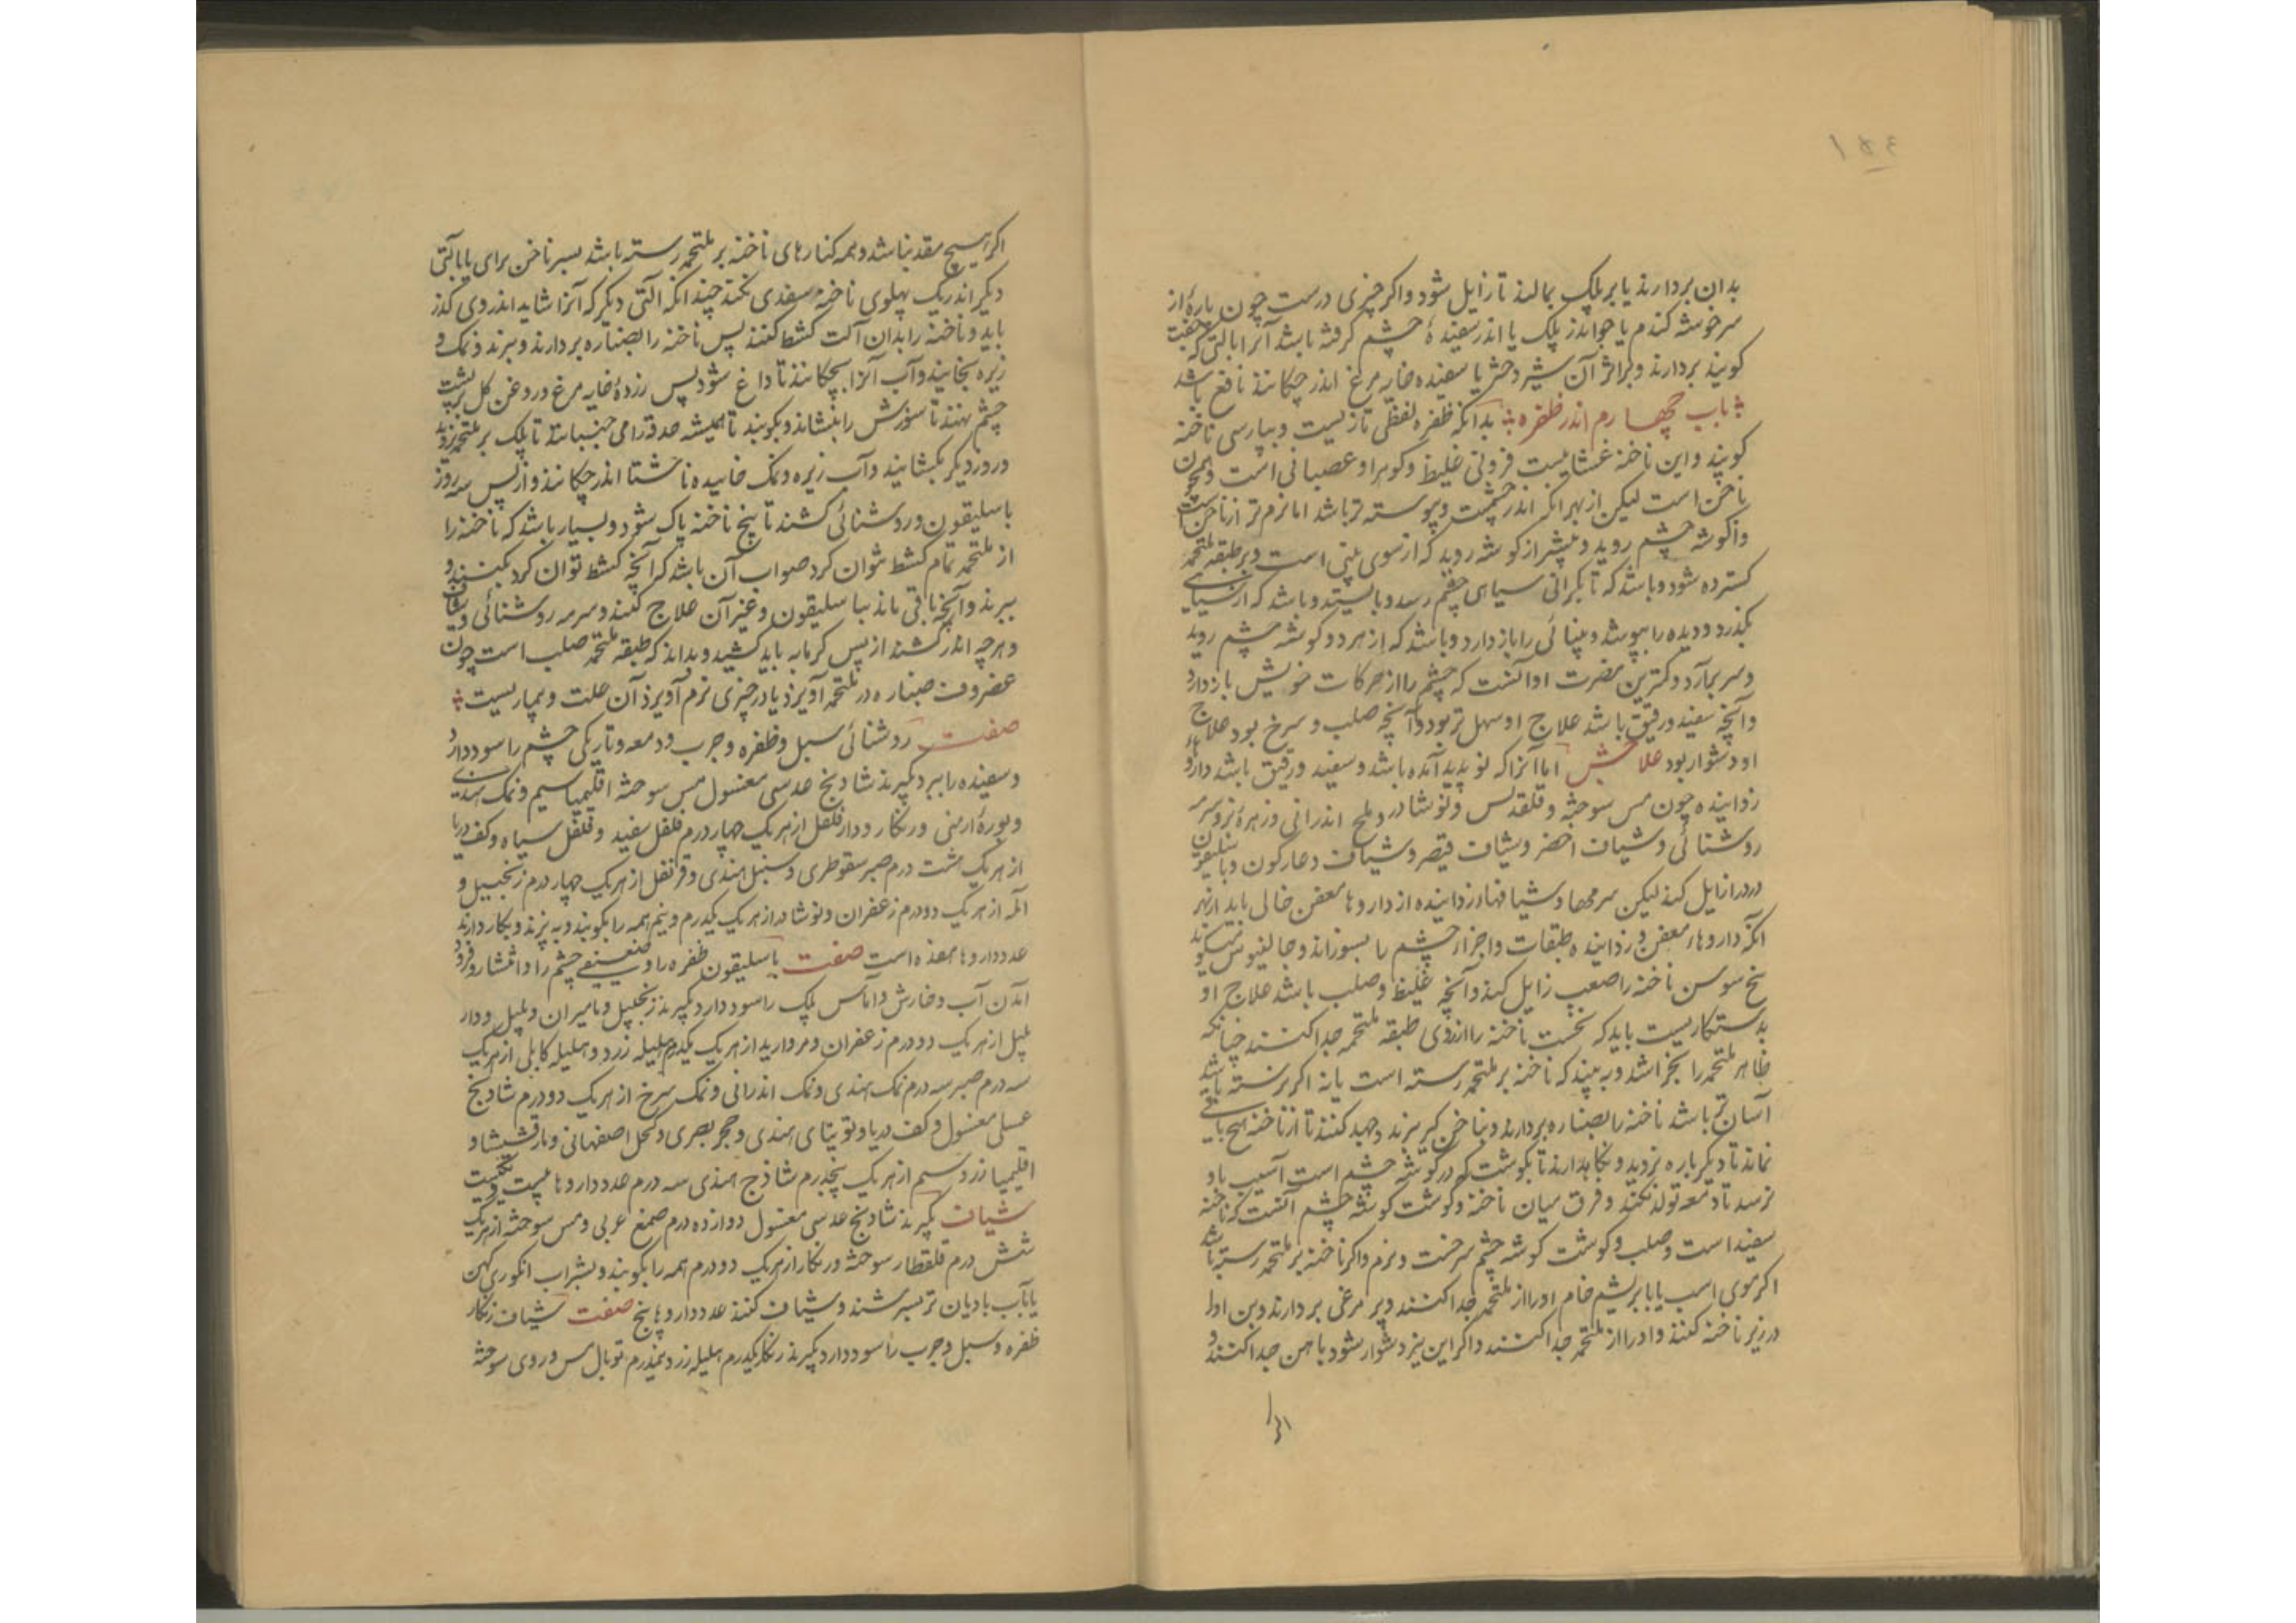 ۱۵٤
بدان بردارند یا بر پلک بمالند تا زایل شود و اکر چیزی درست چون پارهٔ از
سر خوشه کندم یا جو اندر پلک یا اندر سفیدهٔ چشم کرفته باشد آنرا بآلتی که جفت
کویند بردارند و براثر آن شیر دختر یا سفیده خایه مرغ اندر چکانند نافع باشد
باب چهارم اندر ظفره بدانکه ظفره لفظی تازیست و بپارسی ناخنه
کویند و این ناخنه غشایست فزونی غلیظ و کوهر او عصبانی است و همچون
ناخن است لیکن از بهر انکه اندر چشمست و پیوسته تر باشد اما نرم تر از ناخن است
و از کوشه چشم روید و بیشتر از کوشه روید که از سوی بینی است و بر طبقه ملتحمه
کسترده شود و باشد که تا بکرانی سیاهی چشم رسد و بایستد و باشد که از سیاهی
بکذرد و دیده را بپوشد و بینائی را باز دارد و باشد که از هر دو کوشه چشم روید
و سر بهم آرد و کمترین مضرت او آنست که چشم را از حرکات خویش باز دارد
و آنچه سفید و رقیق باشد علاج او سهل تر بود و آنچه صلب و سرخ بود علاج
او دشوار بود علاجش اما آنرا که نو پدید آمده باشد و سفید و رقیق باشد داروهاء
زداینده چون مس سوخته و قلقدیس و نوشادر و ملح اندرانی و زهرهٔ بز و سرمه
روشنائی و شیاف اخضر و شیاف قیصر و شیاف دعارکون و باسلیقون
درد را زایل کند لیکن سرمها و شیافها و زداینده از داروها معفن خالی باید از بهر
انکه داروهاء معفن و زداینده طبقات و اجزاء چشم را بسوزاند و جالینوس میکوید
بیخ سوسن ناخنه را صعب زایل کند و آنچه غلیظ و صلب باشد علاج او
بدستکاریست باید که نخست ناخنه را از روی طبقه ملتحمه جدا کنند چنانکه
ظاهر ملتحمه را بخراشد و به بیند که ناخنه بر ملتحمه رسته است یا نه اکر برنسته باشد
آسان تر باشد ناخنه را بصناره بردارند و بناخن کیر ببرند و جهد کنند تا از ناخنه هیچ باقی
نماند تا دیکر باره نروید و نکاه دارند تا بکوشت که در کوشه چشم است آسیب باو
نرسد تا دمعه تولد نکند و فرق میان ناخنه و کوشت کوشه چشم آنست که ناخنه
سفید است و صلب و کوشت کوشه چشم سرخست و نرم و اکر ناخنه بر ملتحمه رسته باشد
اکر موی اسب یا بابریشم خام او را از ملتحمه جدا کنند و پر مرغی بردارند و بن او را
در زیر ناخنه کنند و او را از ملتحمه جدا کنند و اکر این نیز دشوار شود باهن جدا کنند و
اکر هیچ منفذ نباشد و همه کنارهای ناخنه بر ملتحمه رسته باشد بسر ناخن برای یا بآلتی
دیکر اندر یک پهلوی ناخنه منفذی بکنند چندانکه آلتی دیکر که آنرا شاید اندر وی کذر
یابد و ناخنه را بدان آلت کشط کنند پس ناخنه را بصناره بردارند و ببرند و نمک و
زیره بخایند و آب آنرا بچکانند تا داغ شود پس زردهٔ خایه مرغ و روغن کل بر پشت
چشم نهند تا سوزش را بنشاند و بکویند تا همیشه حدقه را می جنباند تا پلک بر ملتحمه نروید
و روز دیکر بکشایند و آب زیره و نمک خاییده ناشتا اندر چکانند و از پس سه روز
باسلیقون و روشنائی کشند تا بیخ ناخنه پاک شود و بسیار باشد که ناخنه را
از ملتحمه تمام کشط نتوان کرد صواب آن باشد که آنچه کشط توان کرد بکنند و
ببرند و آنچه باقی ماند بباسلیقون و غیر آن علاج کنند و سرمه روشنائی و شیاف
و هرچه اندر کشند از پس کرمابه باید کشید و بداند که طبقه ملتحمه صلب است چون
غضروف صناره در ملتحمه آویزد یا در چیزی نرم آویزد آن علت و بیماریست
صفت روشنائی سبل و ظفره و جرب و دمعه و تاریکی چشم را سود دارد
و سفیده را ببرد بکیرند شادنج عدسی مغسول مس سوخته اقلیمیا سیم و نمک هندی
و بورهٔ ارمنی و زنکار و دارفلفل از هر یک چهار درم فلفل سفید و فلفل سیاه و کف دریا
از هر یک هشت درم صبر سقوطری و سنبل هندی و قرنفل از هر یک چهار درم زنجبیل و
آمله از هر یک دو درم زعفران و نوشادر از هر یک یکدرم و نیم همه را بکوبند و به پزند و بکار دارند
عدد داروها هفده است صفت باسلیقون ظفره را و ضعیفی چشم را و انتشار و فرود
آمدن آب و خارش و آماس پلک را سود دارد بکیرند زنجبیل و مامیران و پلپل و دار
پلپل از هر یک دو درم زعفران و مروارید از هر یک یکدرم هلیله زرد و هلیله کابلی از هر یک
سه درم صبر سه درم نمک هندی و نمک اندرانی و نمک سرخ از هر یک دو درم شادنج
عسلی مغسول و کف دریا و توتیای هندی و حجر بصری و کحل اصفهانی و مارقشیشا و
اقلیمیا زر و سیم از هر یک پنجدرم شاذج هندی سه درم عدد داروها بیست و یکست
شیاف بکیرند شادنج عدسی مغسول دوازده درم صمغ عربی و مس سوخته از هر یک
شش درم قلقطار سوخته و زنکار از هر یک دو درم همه را بکوبند و بشراب انکوری کهن
یا بآب بادیان تر بسرشند و شیاف کنند عدد داروها پنج صفت شیاف زنکار
ظفره و سبل و جرب را سود دارد بکیرند زنکار یکدرم هلیله زرد نیمدرم توبال مس و روی سوخته